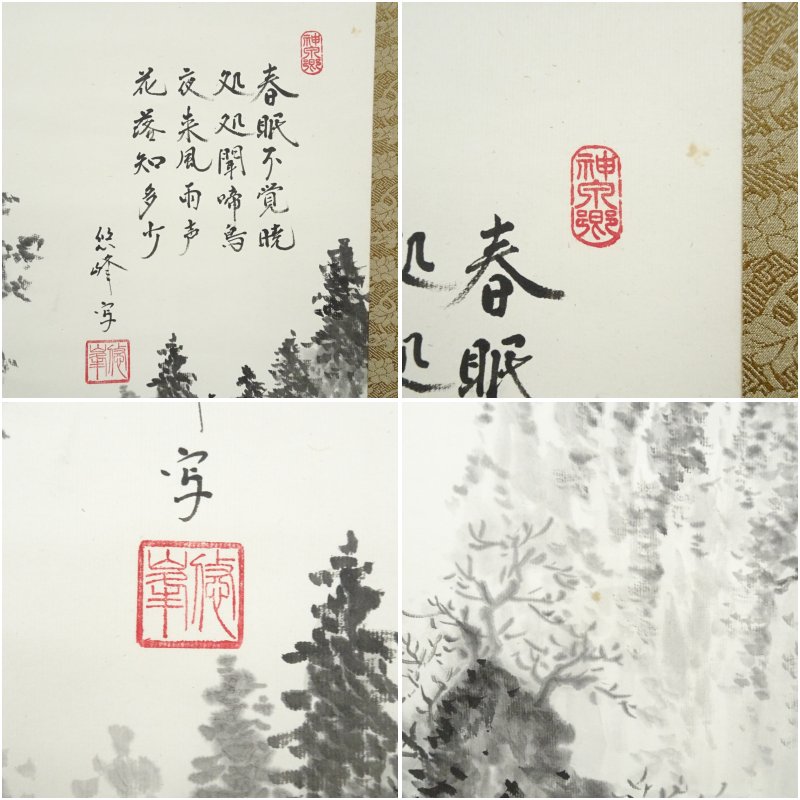 神泉郷
春眠不覚暁
処処聞啼鳥
夜来風雨声
花落知多少
悠峰写
悠峯
神泉郷
春眠
処処
写
悠峯